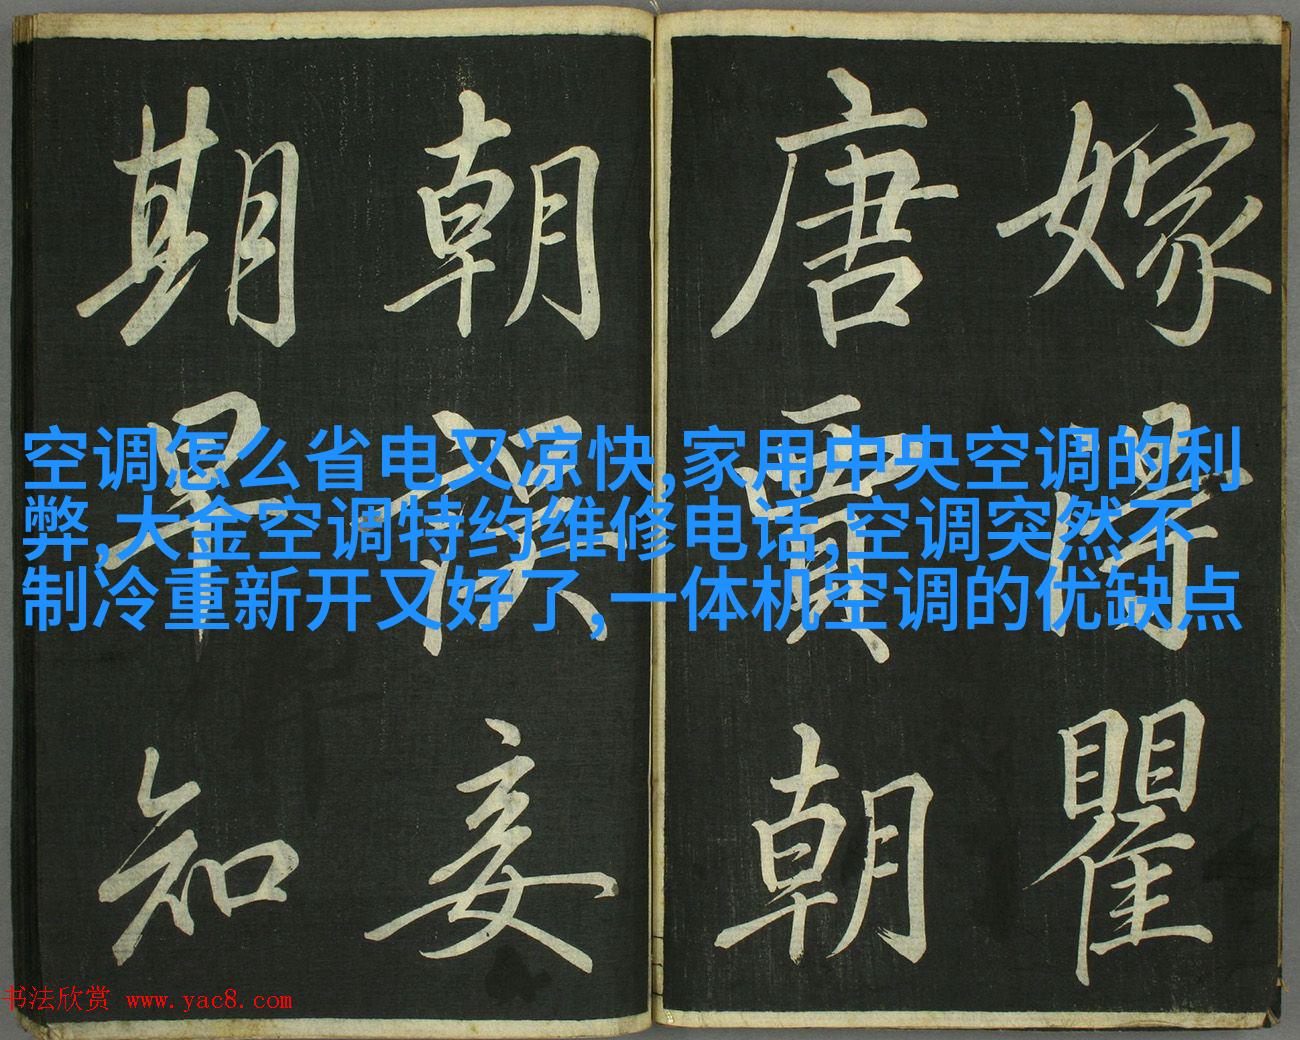 嫁得瞿
唐賈朝
朝誤妾
期早知
空调怎么省电又凉快,家用中央空调的利
弊,大金空调特约维修电话,空调突然不
制冷重新开又好了,一体机空调的优缺点
书法欣赏 www.yac8.com